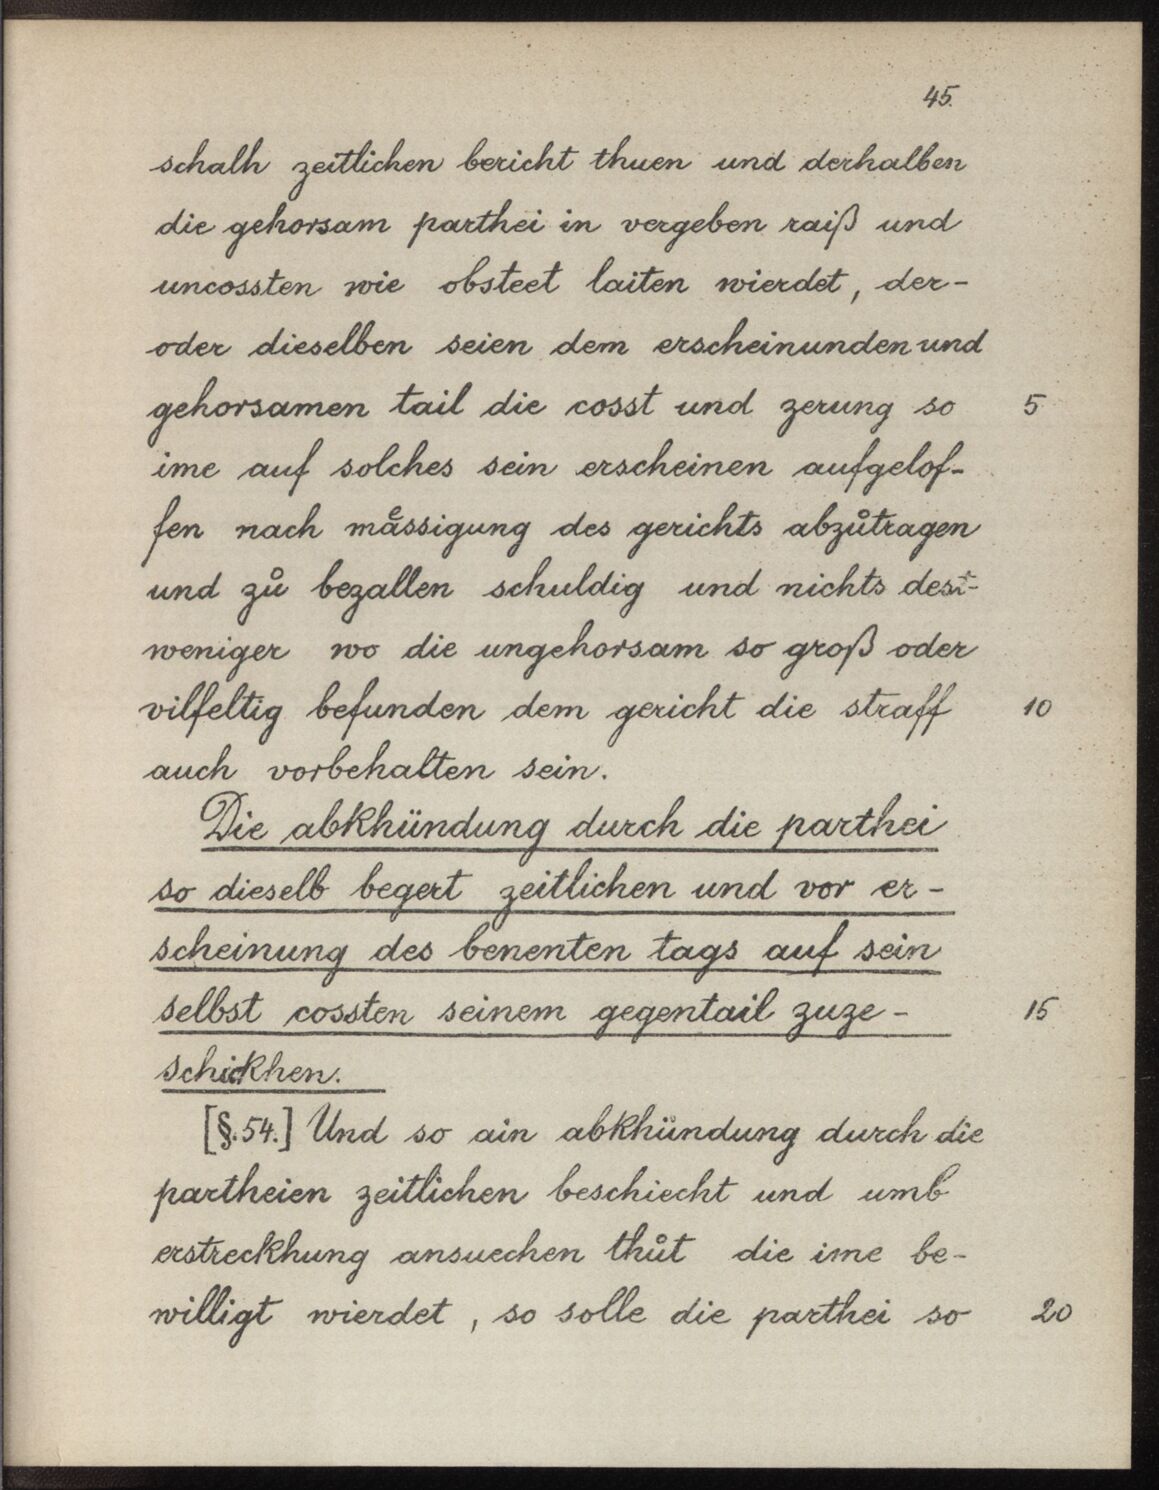 45.
schalh zeitlichen bericht thuen und derhalben
die gehorsam parthei in vergeben raiß und
uncossten wie obsteet laiten wierdet, der-
oder dieselben seien dem erscheinunden und
gehorsamen tail die cosst und zerung so 5
ime auf solches sein erscheinen aufgelof-
fen nach maͤssigung des gerichts abzůtragen
und zů bezallen schuldig und nichts dest-
weniger wo die ungehorsam so groß oder
vilfeltig befunden dem gericht die straff 10
auch vorbehalten sein.
Die abkhündung durch die parthei
so dieselb begert zeitlichen und vor er-
scheinung des benenten tags auf sein
selbst cossten seinem gegentail zuze- 15
schickhen.
[§.54.] Und so ain abkhündung durch die
partheien zeitlichen beschiecht und umb
erstreckhung ansuechen thůt die ime be-
willigt wierdet, so solle die parthei so 20